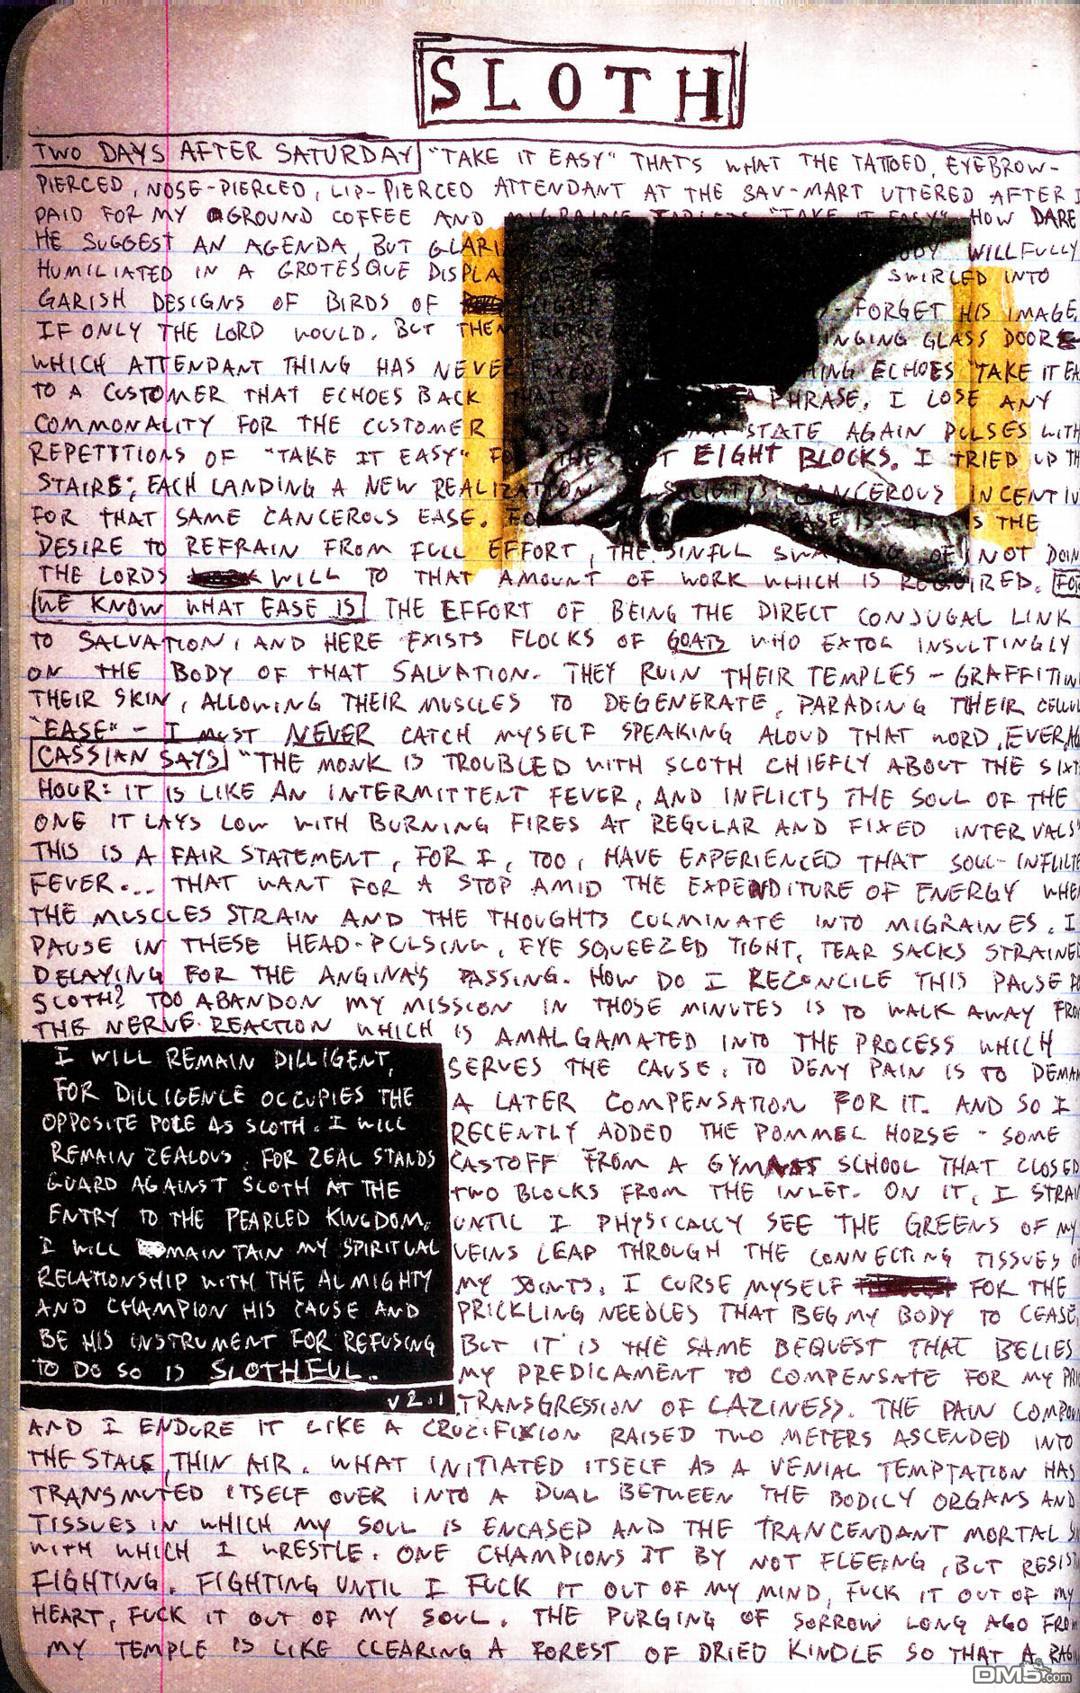 SLOTH
TWO DAYS AFTER SATURDAY "TAKE IT EASY" THAT'S WHAT THE TATTOED, EYEBROW-
PIERCED, NOSE-PIERCED, LIP-PIERCED ATTENDANT AT THE SAV-MART UTTERED AFTER I
PAID FOR MY GROUND COFFEE AND MIGRAINE TABLETS "TAKE IT EASY" HOW DARE
HE SUGGEST AN AGENDA, BUT GLARI BODY WILLFULLY
HUMILIATED IN A GROTESQUE DISPLA SWIRLED INTO
GARISH DESIGNS OF BIRDS OF FORGET HIS IMAGE,
IF ONLY THE LORD WOULD. BUT THEN INGING GLASS DOOR
WHICH ATTENDANT THING HAS NEVER FIXED THING ECHOES "TAKE IT EA
TO A CUSTOMER THAT ECHOES BACK THAT A PHRASE. I LOSE ANY
COMMONALITY FOR THE CUSTOMER STATE AGAIN PULSES WITH
REPETITIONS OF "TAKE IT EASY" FO THE T EIGHT BLOCKS. I TRIED UP TH
STAIRS; EACH LANDING A NEW REALIZATION SOCIETY'S CANCEROUS INCENTIV
FOR THAT SAME CANCEROUS EASE. FO EASE IS IS THE
DESIRE TO REFRAIN FROM FULL EFFORT, THE SINFUL SWA OF NOT DOIN
THE LORDS WILL TO THAT AMOUNT OF WORK WHICH IS REQUIRED. FOR
WE KNOW WHAT EASE IS THE EFFORT OF BEING THE DIRECT CONJUGAL LINK
TO SALVATION, AND HERE EXISTS FLOCKS OF GOATS WHO EXTOL INSULTINGLY
ON THE BODY OF THAT SALVATION. THEY RUIN THEIR TEMPLES - GRAFFITIIN
THEIR SKIN, ALLOWING THEIR MUSCLES TO DEGENERATE, PARADING THEIR CELLUL
"EASE" - I MUST NEVER CATCH MYSELF SPEAKING ALOUD THAT WORD, EVER, AG
CASSIAN SAYS "THE MONK IS TROUBLED WITH SLOTH CHIEFLY ABOUT THE SIXT
HOUR: IT IS LIKE AN INTERMITTENT FEVER, AND INFLICTS THE SOUL OF THE
ONE IT LAYS LOW WITH BURNING FIRES AT REGULAR AND FIXED INTERVALS"
THIS IS A FAIR STATEMENT, FOR I, TOO, HAVE EXPERIENCED THAT SOUL-INFLICTE
FEVER... THAT WANT FOR A STOP AMID THE EXPENDITURE OF ENERGY WHEN
THE MUSCLES STRAIN AND THE THOUGHTS CULMINATE INTO MIGRAINES. I
PAUSE IN THESE HEAD-PULSING, EYE SQUEEZED TIGHT, TEAR SACKS STRAINED
DELAYING FOR THE ANGINA'S PASSING. HOW DO I RECONCILE THIS PAUSE
SLOTH? TOO ABANDON MY MISSION IN THOSE MINUTES IS TO WALK AWAY FROM
THE NERVE REACTION WHICH IS AMALGAMATED INTO THE PROCESS WHICH
SERVES THE CAUSE. TO DENY PAIN IS TO DEMAN
A LATER COMPENSATION FOR IT. AND SO I
RECENTLY ADDED THE POMMEL HORSE - SOME
CASTOFF FROM A GYMNAST SCHOOL THAT CLOSED
TWO BLOCKS FROM THE INLET. ON IT, I STRAIN
UNTIL I PHYSICALLY SEE THE GREENS OF MY
VEINS LEAP THROUGH THE CONNECTING TISSUES OF
MY JOINTS. I CURSE MYSELF FOR THE
PRICKLING NEEDLES THAT BEG MY BODY TO CEASE,
BUT IT IS THE SAME BEQUEST THAT BELIES
MY PREDICAMENT TO COMPENSATE FOR MY PRI
TRANSGRESSION OF LAZINESS. THE PAIN COMPOUN
I WILL REMAIN DILLIGENT,
FOR DILLIGENCE OCCUPIES THE
OPPOSITE POLE AS SLOTH. I WILL
REMAIN ZEALOUS. FOR ZEAL STANDS
GUARD AGAINST SLOTH AT THE
ENTRY TO THE PEARLED KINGDOM.
I WILL MAINTAIN MY SPIRITUAL
RELATIONSHIP WITH THE ALMIGHTY
AND CHAMPION HIS CAUSE AND
BE HIS INSTRUMENT FOR REFUSING
TO DO SO IS SLOTHFUL.
V2.1
AND I ENDURE IT LIKE A CRUCIFIXION RAISED TWO METERS ASCENDED INTO
THE STALE, THIN AIR. WHAT INITIATED ITSELF AS A VENIAL TEMPTATION HAS
TRANSMUTED ITSELF OVER INTO A DUAL BETWEEN THE BODILY ORGANS AND
TISSUES IN WHICH MY SOUL IS ENCASED AND THE TRANCENDANT MORTAL SIN
WITH WHICH I WRESTLE. ONE CHAMPIONS IT BY NOT FLEEING, BUT RESIST
FIGHTING. FIGHTING UNTIL I FUCK IT OUT OF MY MIND, FUCK IT OUT OF MY
HEART, FUCK IT OUT OF MY SOUL. THE PURGING OF SORROW LONG AGO FROM
MY TEMPLE IS LIKE CLEARING A FOREST OF DRIED KINDLE SO THAT A RAGIN
DM5.com